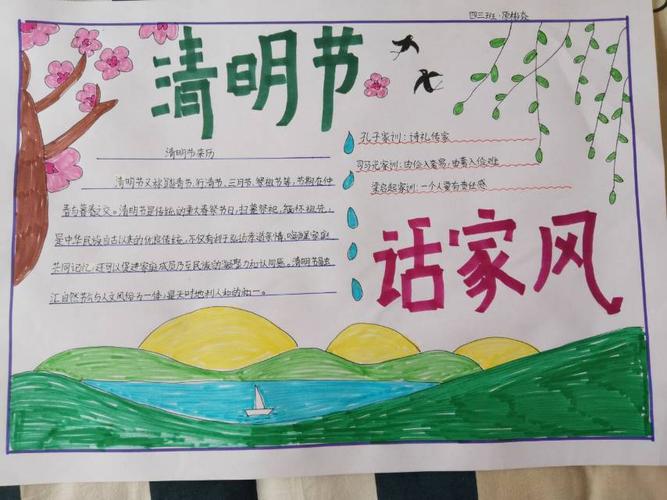 四三班
清明节
清明节来历
清明节又称踏青节、行清节、三月节、祭祖节等，节期在仲
春与暮春之交。清明节是传统的重大春祭节日，扫墓祭祀、缅怀祖先，
是中华民族自古以来的优良传统，不仅有利于弘扬孝道亲情、唤醒家族
共同记忆，还可以促进家庭成员乃至民族的凝聚力和认同感。清明节融
汇自然节气与人文风俗为一体，是天时地利人和的合一。
孔子家训：诗礼传家
司马光家训：由俭入奢易，由奢入俭难
梁启超家训：一个人要有责任感
话家风